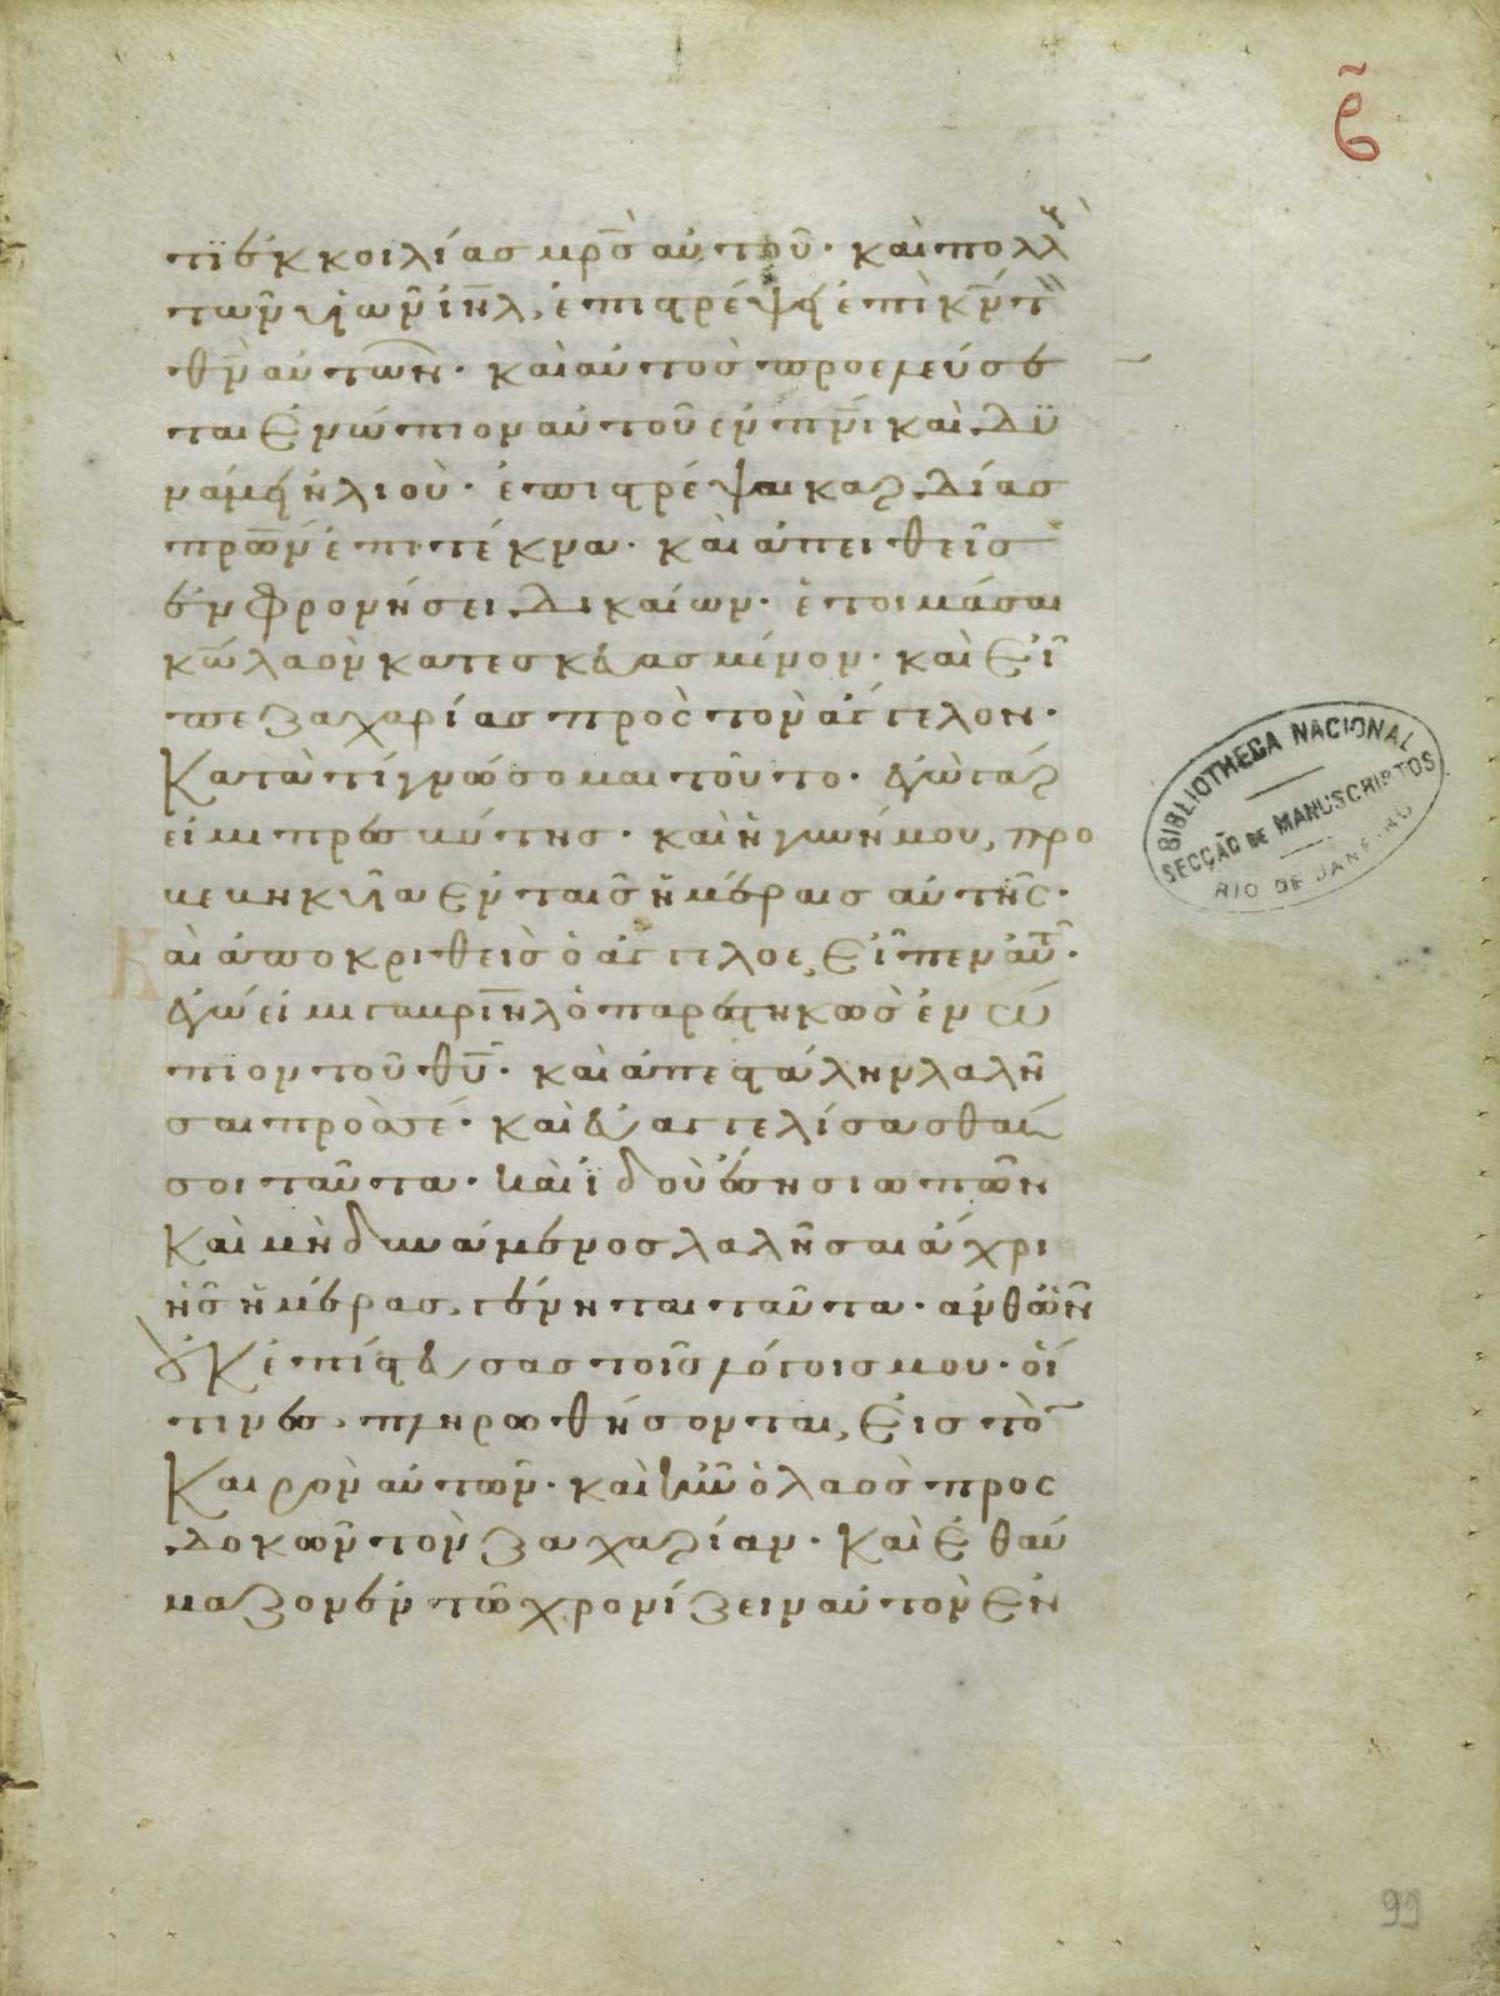 τϊ ἐκ κοιλίας μρ̅ς αὐτοῦ· καὶ πολλ
τῶν υἱῶν ἰη̅λ, ἐπιστρέψει ἐπὶ κν̅ τ
θν̅ αὐτῶν· καὶ αὐτὸς προελεύσε
ται ἐνώπιον αὐτοῦ ἐν πνι̅ καὶ δυ
νάμει ἠλιοὺ· ἐπιστρέψαι καρδίας
πρω̅ν ἐπι τέκνα· καὶ ἀπειθεῖς
ἐν φρονήσει δικαίων· ἑτοιμάσαι
κω̅ λαὸν κατεσκευασμένον· καὶ εἶ
πε ζαχαρίας πρὸς τὸν ἄγγελον·
Κατὰ τί γνώσομαι τοῦτο· ἐγὼ γάρ
εἰμι πρεσβύτης· καὶ ἡ γυνή μου, προ
βεβηκυῖα ἐν ταῖς ἡμέραις αὐτῆς·
Καὶ ἀποκριθεὶς ὁ ἄγγελος, εἶπεν αὐτ·
ἐγώ εἰμι γαβριη̅λ ὁ παρεστηκὼς ἐνώ
πιον τοῦ θυ̅· καὶ ἀπεστάλην λαλῆ
σαι προσσέ· καὶ εὐαγγελίσασθαί
σοι ταῦτα· καὶ ἰδοὺ ἔση σιωπῶν
καὶ μὴ δυνάμενος λαλῆσαι ἄχρι
ἧς ἡμέρας, γένηται ταῦτα· ἀνθ' ὧν
οὐκ ἐπίστευσας τοῖς λόγοις μου· οἵ
τινες, πληρωθήσονται, εἰς τὸ
καιρὸν αὐτῶν· καὶ ἦν ὁ λαὸς προς
δοκῶν τὸν ζαχαρίαν· καὶ ἐθαύ
μαζον ἐν τῷ χρονίζειν αὐτὸν ἐν
BIBLIOTHECA NACIONAL
SECÇÃO DE MANUSCRIPTOS
RIO DE JANEIRO
99